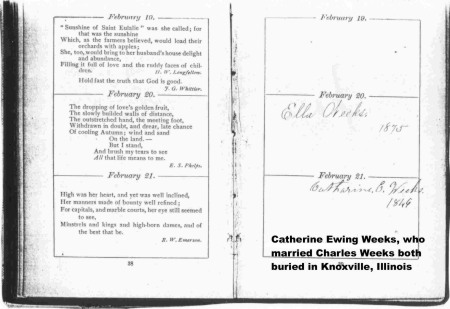 February 19.
"Sunshine of Saint Eulalie" was she called; for
that was the sunshine
Which, as the farmers believed, would load their
orchards with apples;
She, too, would bring to her husband's house delight
and abundance,
Filling it full of love and the ruddy faces of chil-
dren.
H. W. Longfellow.
Hold fast the truth that God is good.
J. G. Whittier.
February 20.
The dropping of love's golden fruit,
The slowly builded walls of distance,
The outstretched hand, the meeting foot,
Withdrawn in doubt, and drear, late chance
Of cooling Autumn; wind and sand
On the land. —
But I stand,
And brush my tears to see
All that life means to me.
E. S. Phelps.
February 21.
High was her heart, and yet was well inclined,
Her manners made of bounty well refined;
For capitals, and marble courts, her eye still seemed
to see,
Minstrels and kings and high-born dames, and of
the best that be.
R. W. Emerson.
38
February 19.
February 20.
Ella Weeks.
1875
February 21.
Catharine E. Weeks.
1849
Catherine Ewing Weeks, who
married Charles Weeks both
buried in Knoxville, Illinois